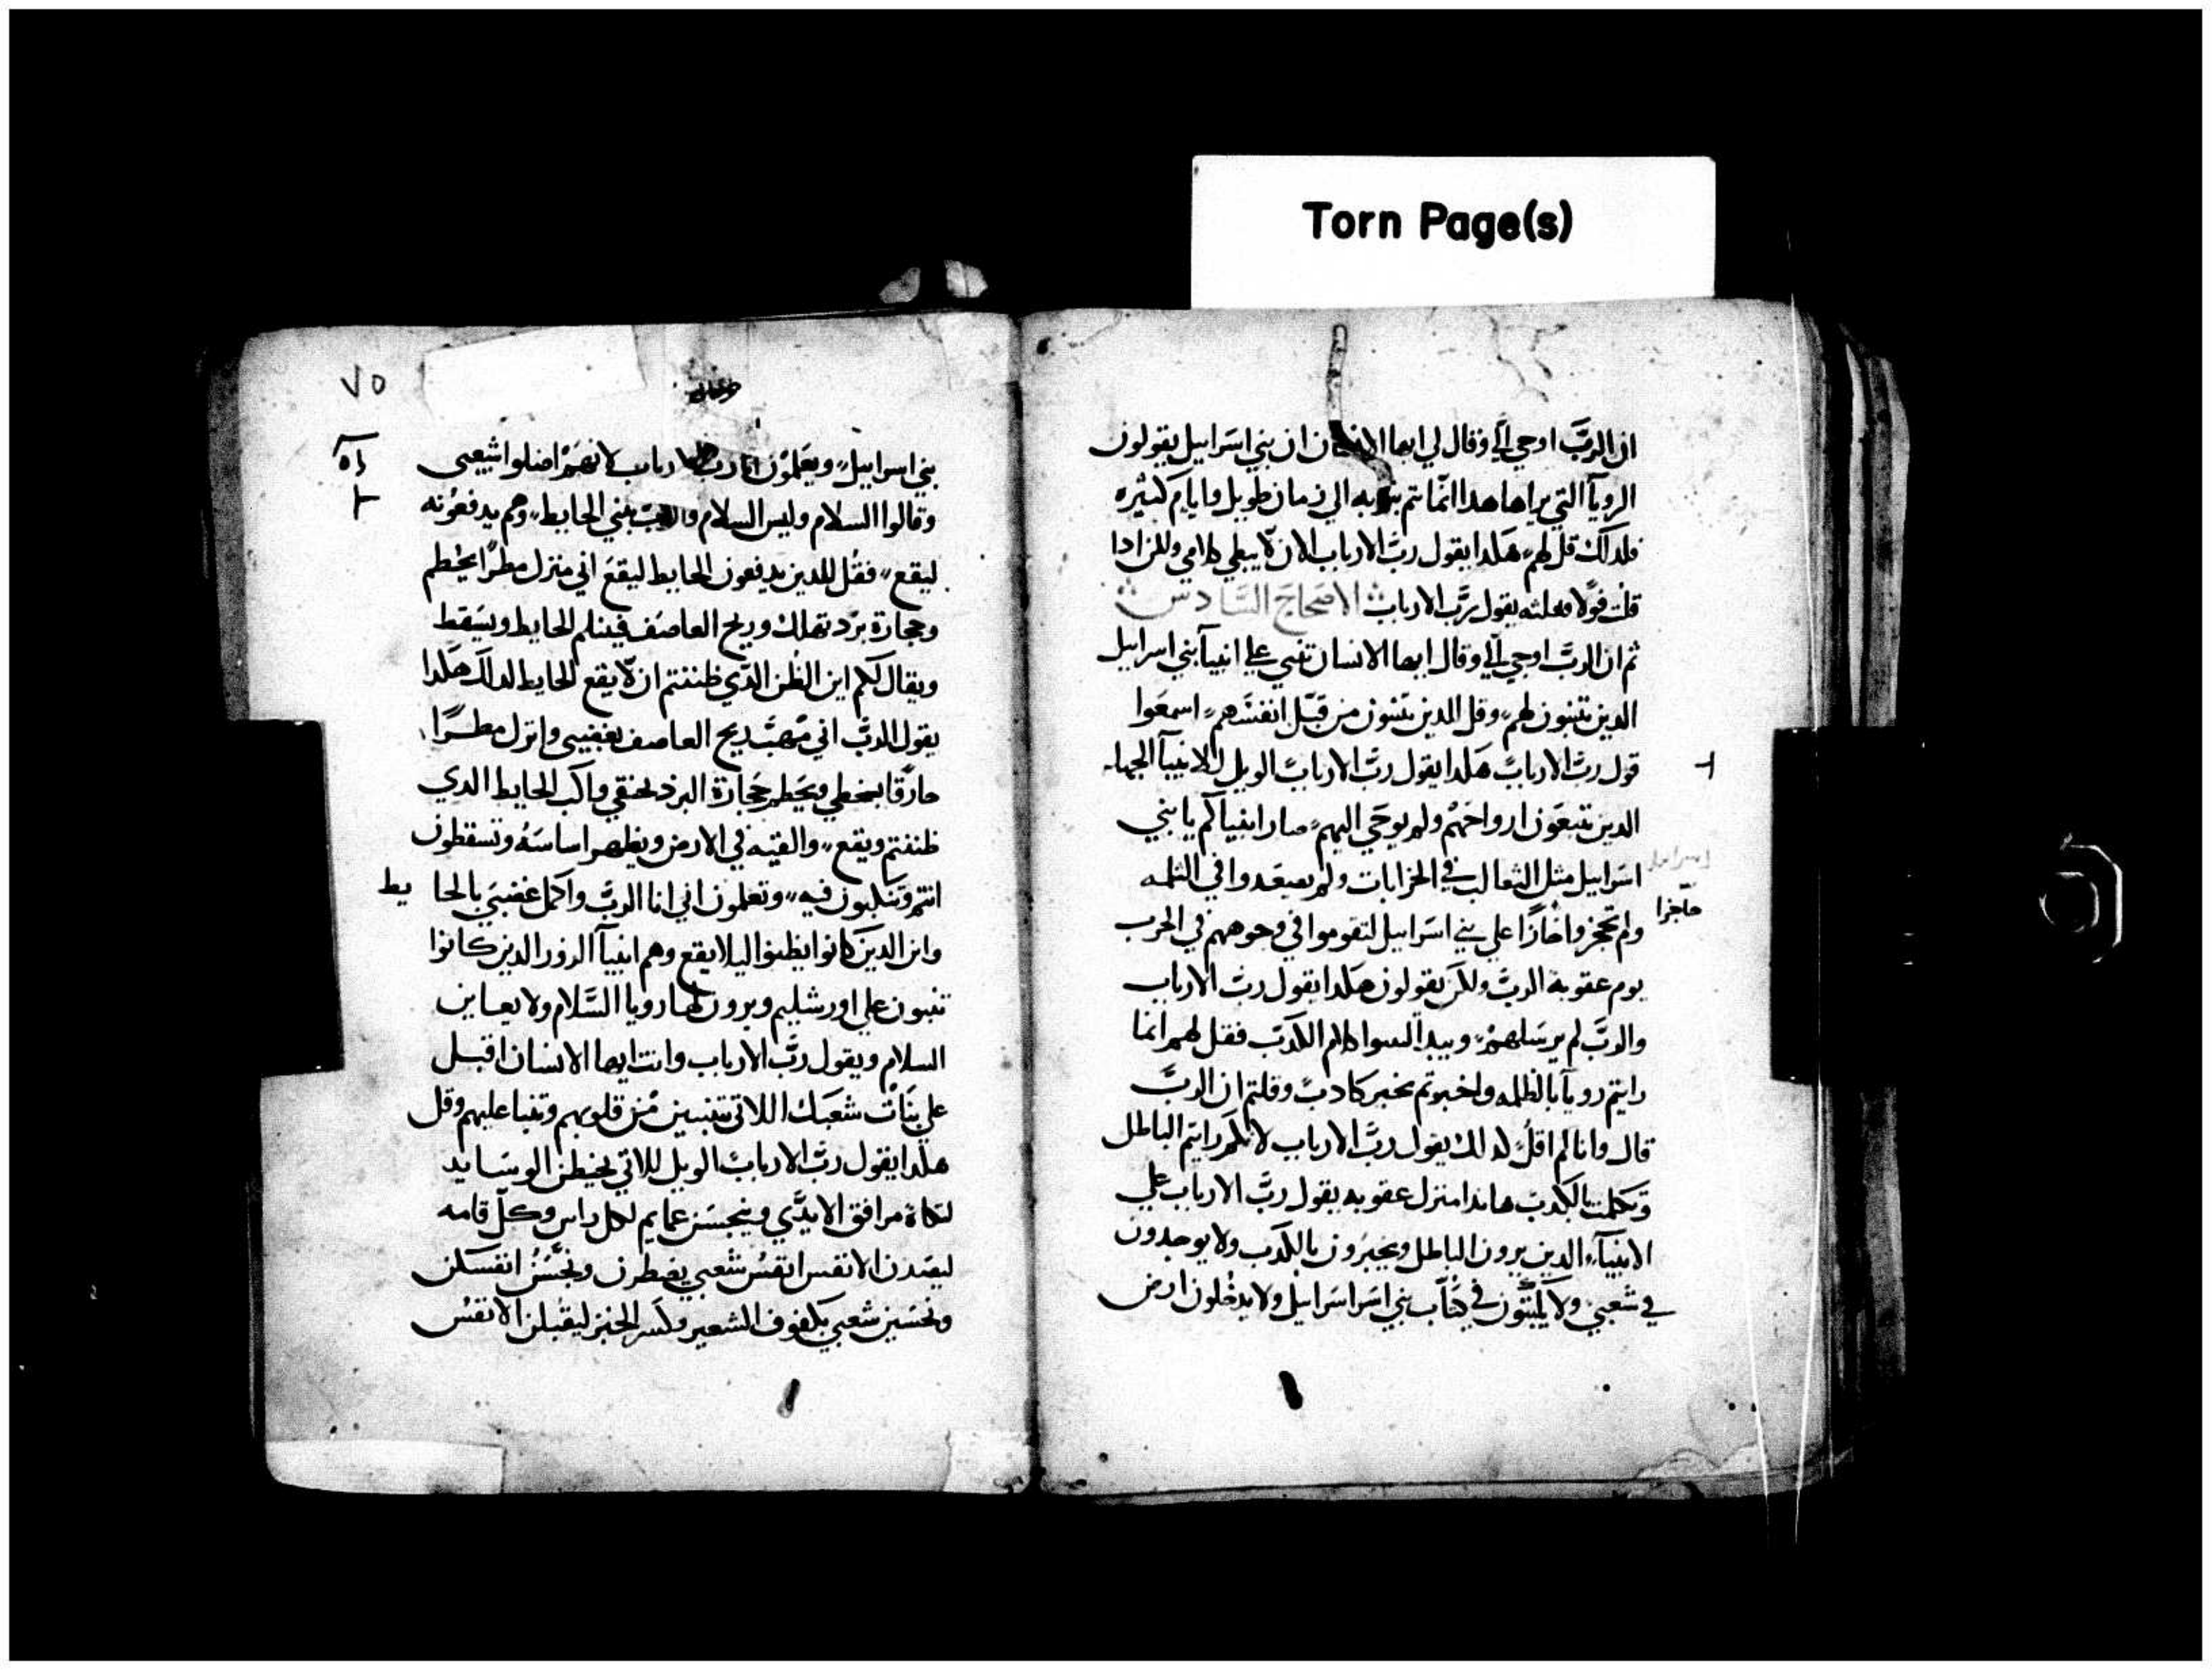 Torn Page(s)
ان الرب اوحي الي وقال لي ايها الانسان ان بني اسرابيل يقولون
الرويا التي يراها هدا انما تتم بنوته الي زمان طويل وايام كثيره
فلدلك قل لهم هكدا يقول رب الارباب الان لا يبطي كلامي ولكن ادا
قلت قولا فعلته يقول رب الارباب الاصحاح السادس
ثم ان الرب اوحي الي وقال ايها الانسان تنبي علي انبيا بني اسرابيل
الدين يتنبون لهم وقل للدين يتنبون من قبل انفسهم اسمعوا
قول رب الارباب هكدا يقول رب الارباب الويل للانبيا الجهله
الدين يتبعون ارواحهم ولم يوحي اليهم صار انبياكم يا بني
اسرابيل مثل الثعالب في الخرابات ولم يصعدوا في الثلمه
حاجزا
ولم تحجزوا علي بني اسرابيل لتقوموا في وجوههم في الحرب
يوم عقوبة الرب ولكن يقولون هكدا يقول رب الارباب
والرب لم يرسلهم كلام الكدب فقل لهم انما
رايتم رويا بالظلمه واخبرتم بخبر كادب وقلتم ان الرب
قال وانا لم اقل لدلك يقول رب الارباب لانكم رايتم الباطل
وتكلمتم بالكدب هاندا منزل عقوبه يقول رب الارباب علي
الانبياء الدين يرون الباطل ويخبرون بالكدب ولا يوجدون
في شعبي ولا يكتبون في كتاب بني اسرا اسرابيل ولا يدخلون ارض
٧٥
بني اسرابيل ويعلمون انا رب الارباب لانهم اضلوا شعبي
وقالوا السلام وليس السلام والرب بيني الحايط وهم يدفعونه
ليقع فقل للدين يدفعون الحايط ليقع اني منزل مطرا يحطم
وحجارة برد تهلك وريح العاصف فينثلم الحايط ويسقط
ويقال لكم اين الظن الدي ظننتم ان لا يقع الحايط لدلك هكدا
يقول الرب اني مهب ريح العاصف بغضبي وانزل مطرا
حارقا بسخطي ويحطم حجارة البرد بحنقي واكب الحايط الدي
ظننتم ويقع والقيه في الارض ويظهر اساسه وتسقطون
انتم وتنكبون فيه وتعلمون اني انا الرب واكمل غضبي بالحايط
واين الدين كانوا يظنوا ليلا يقع وهم انبيا الزور الدين كانوا
يتنبون علي اورشليم ويرون لها رويا السلام ولا يعاين
السلام ويقول رب الارباب وانت ايها الانسان اقبل
علي بنات شعبك اللاتي تتنبين من قلوبهم وتنبا عليهم وقل
هكدا يقول رب الارباب الويل للاتي يخيطن الوسايد
لتكاة مرافق الايدي عمايم لكل راس وكل قامه
ليصدن الانفس انفس شعبي يصطرن انفسكن
شعبي بكفوف الشعير وكسر الخبز ليقتلن الانفس